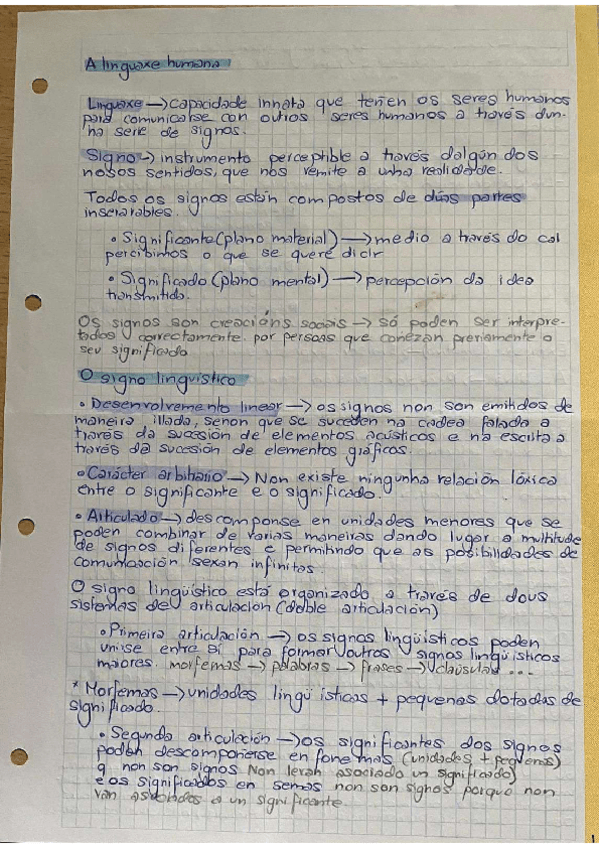 A linguaxe humana
Linguaxe → capacidade innata que teñen os seres humanos
para comunicarse con outros seres humanos a través dun-
nha serie de signos.
Signo → instrumento perceptible a través dalgún dos
nosos sentidos, que nos remite a unha realidade.
Todos os signos están compostos de dúas partes
inseparables.
• Significante (plano material) → medio a través do cal
percibimos o que se quere dicir
• Significado (plano mental) → percepción da idea
transmitida.
Os signos son creacións sociais → só poden ser interpre-
tados correctamente por persoas que coñezan previamente o
seu significado
O signo lingüístico
• Desenvolvemento linear → os signos non son emitidos de
maneira illada, senon que se suceden na cadea falada a
través da sucesión de elementos acústicos e na escrita a
través da sucesión de elementos gráficos.
• Carácter arbitrario → Non existe ningunha relación lóxica
entre o significante e o significado.
• Articulado → descomponse en unidades menores que se
poden combinar de varias maneiras dando lugar a multitude
de signos diferentes e permitindo que as posibilidades de
comunicación sexan infinitas.
O signo lingüístico está organizado a través de dous
sistemas de articulación (doble articulación)
• Primeira articulación → os signos lingüísticos poden
unirse entre si para formar outros signos lingüísticos
maiores. morfemas → palabras → frases → cláusulas ...
* Morfemas → unidades lingüísticas + pequenas dotadas de
significado.
• Segunda articulación → os significantes dos signos
poden descompoñerse en fonemas (unidades + pequenas)
q non son signos Non levan asociado un significado)
e os significados en semas non son signos porque non
van asociados a un significante.